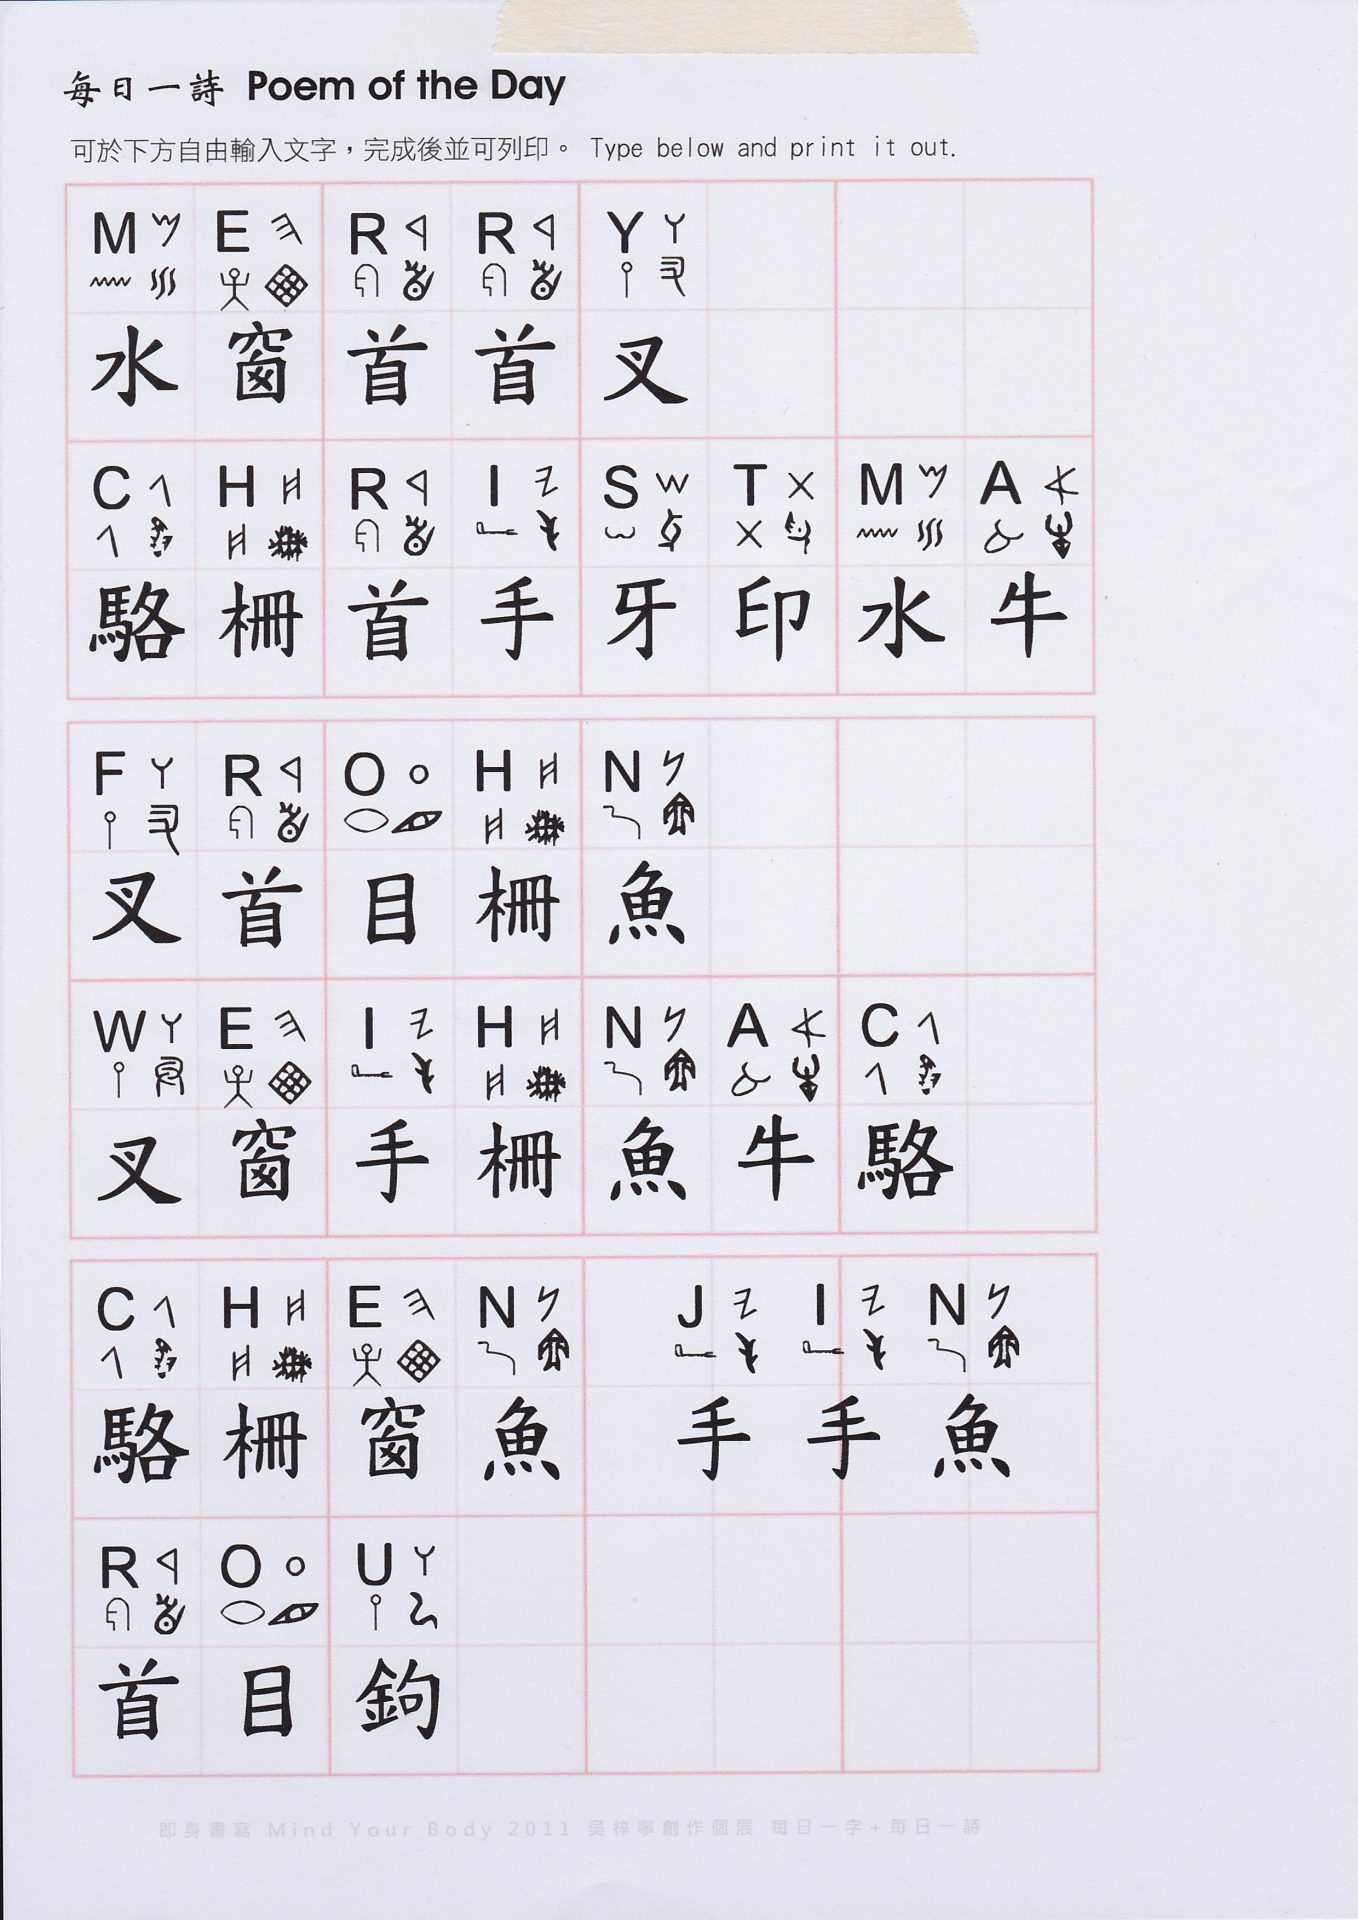 每日一詩 Poem of the Day
可於下方自由輸入文字，完成後並可列印。 Type below and print it out.
M E R R Y
水 窗 首 首 叉
C H R I S T M A
駱 柵 首 手 牙 印 水 牛
F R O H N
叉 首 目 柵 魚
W E I H N A C
叉 窗 手 柵 魚 牛 駱
C H E N J I N
駱 柵 窗 魚 手 手 魚
R O U
首 目 鉤
即身書寫 Mind Your Body 2011 吳梓寧創作個展 每日一字+每日一詩